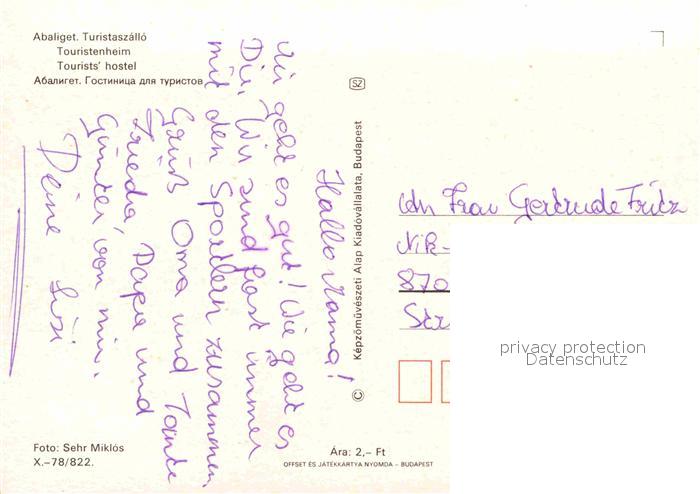 Abaliget. Turistaszálló
Touristenheim
Tourists' hostel
Абалигет. Гостиница для туристов
SZ
Hallo Mama!
Mir geht es gut! Wie geht es
Dir, Wir sind fast immer
mit den Sportlern zusammen,
Grüß Oma und Tante
Frieda, Papa und
Günter von mir.
Deine Sisi
© Képzőművészeti Alap Kiadóvállalata, Budapest
An Frau Gertrude Fritz
Nik-
870
Str
privacy protection
Datenschutz
Foto: Sehr Miklós
X.–78/822.
Ára: 2,– Ft
OFFSET ÉS JÁTÉKKÁRTYA NYOMDA – BUDAPEST